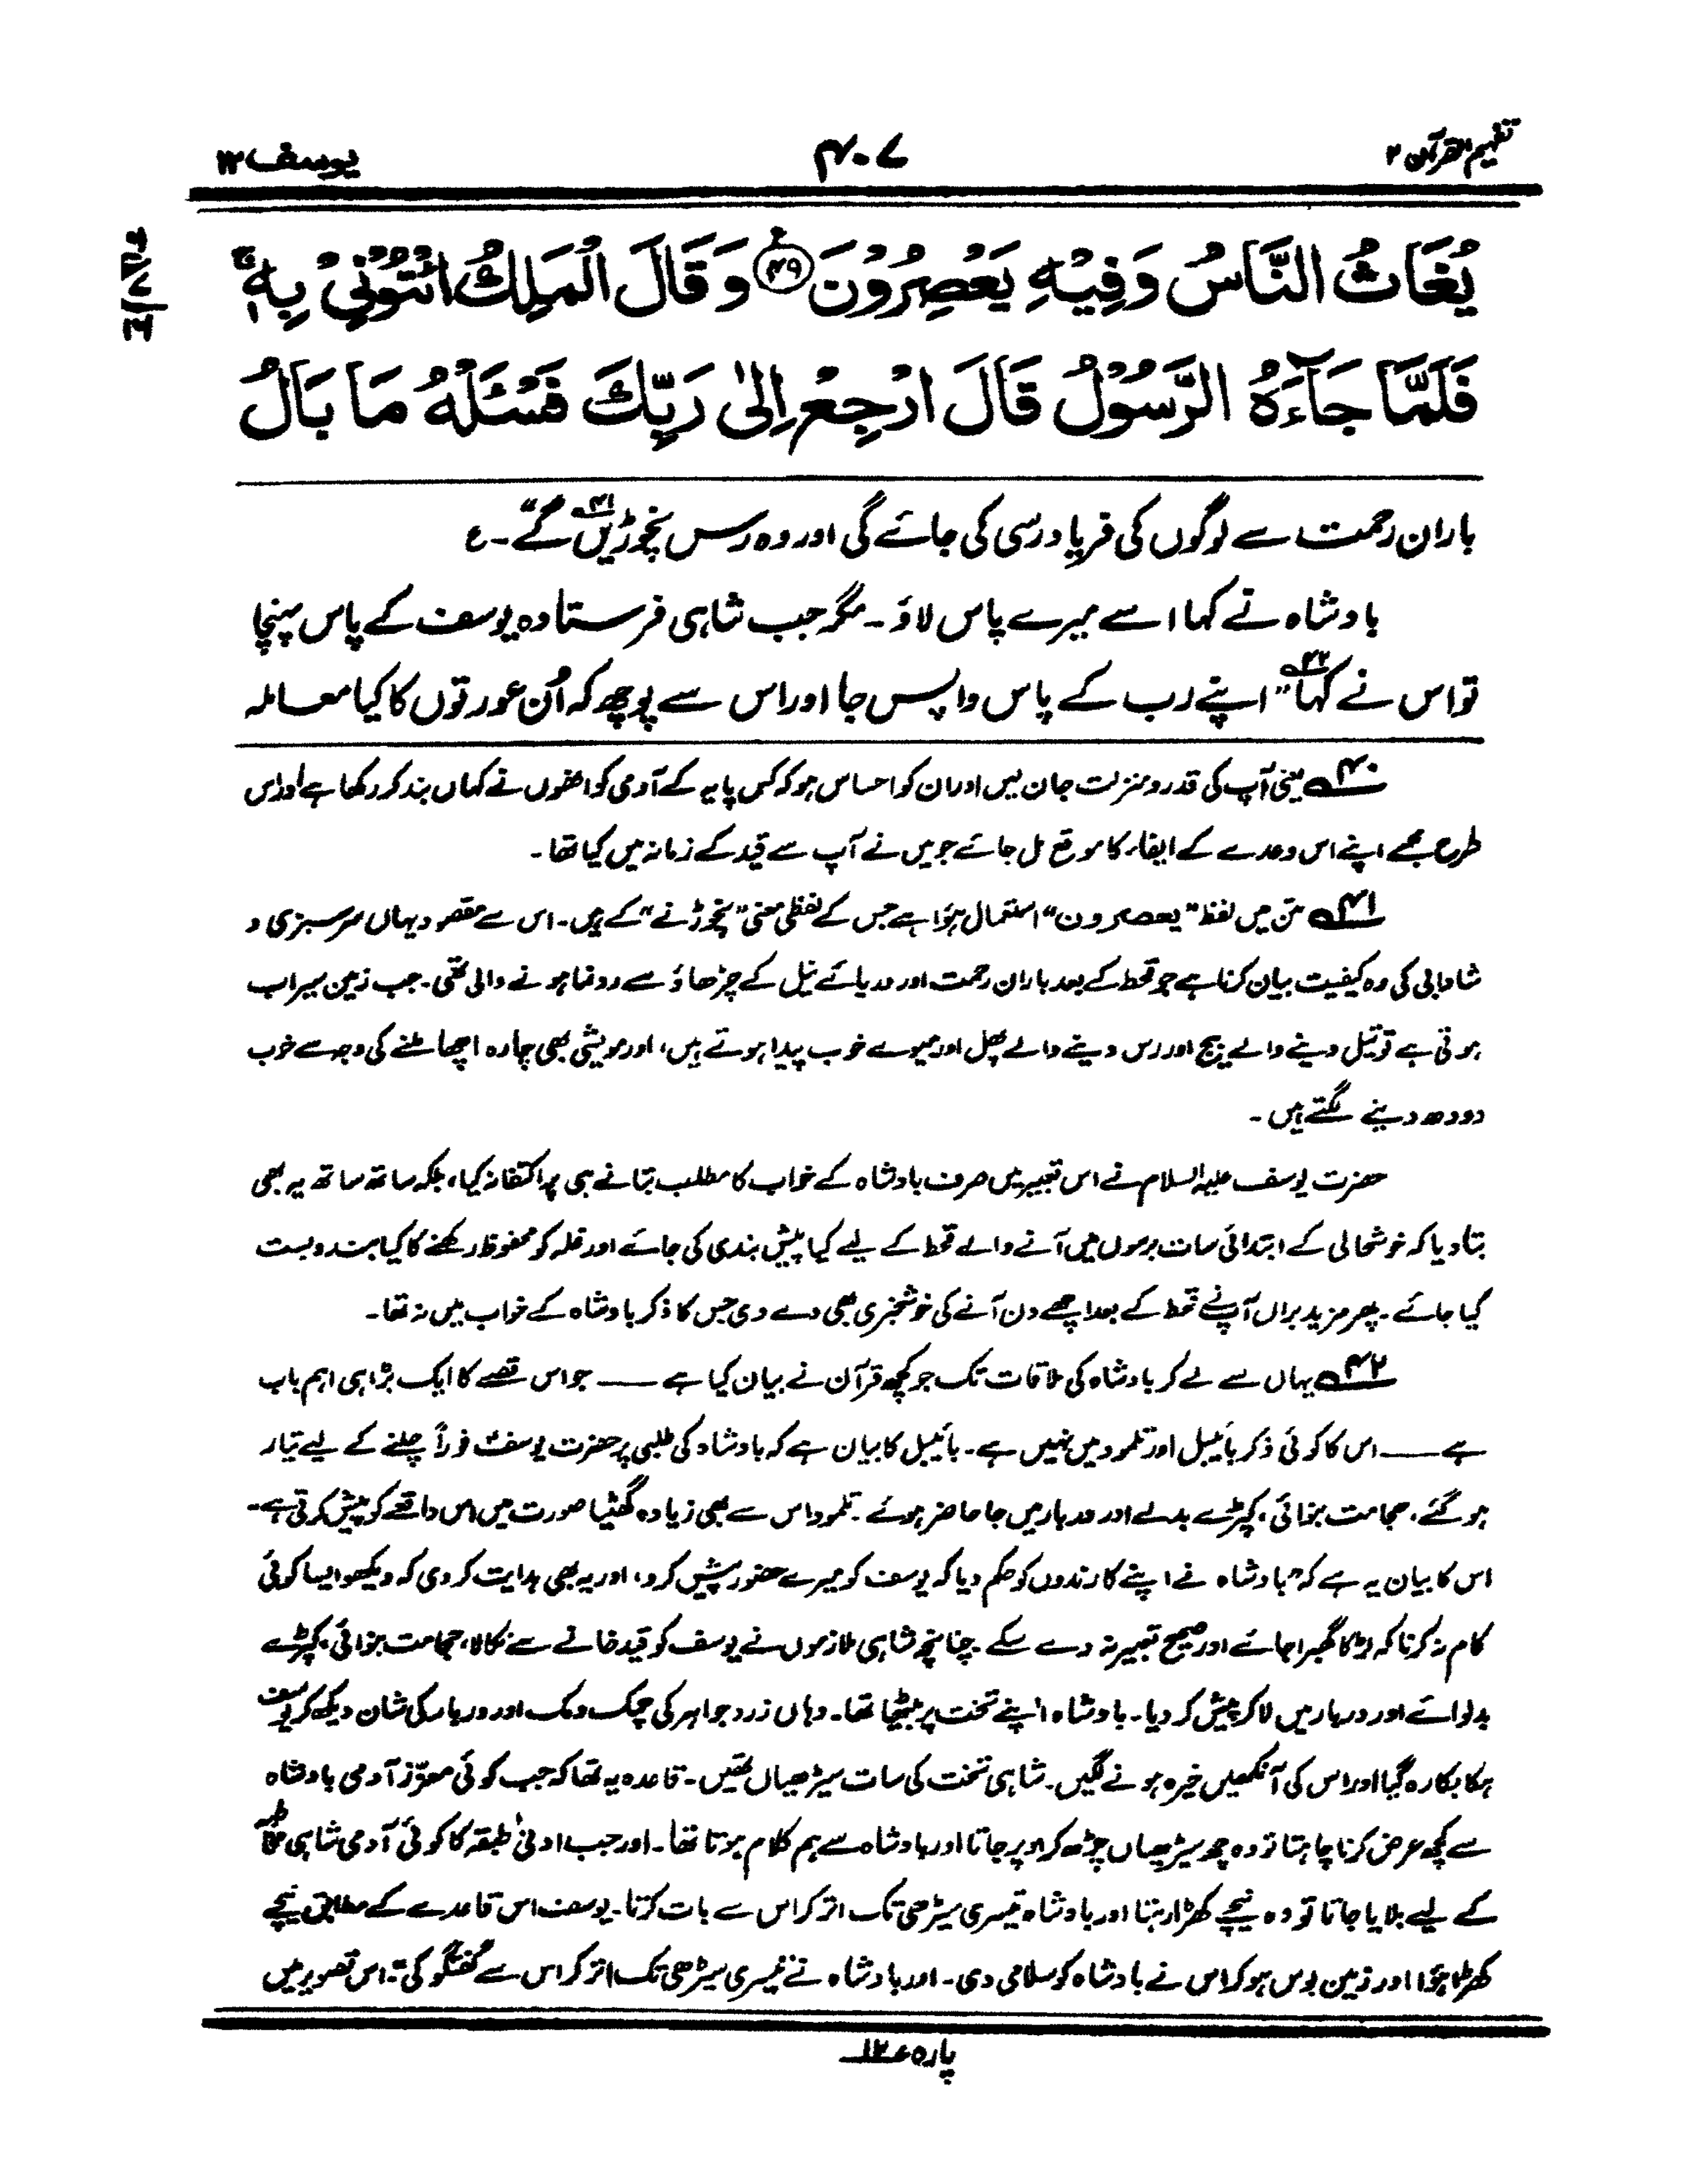 تفہیم القرآن ۲
۴۰۷
یوسف ۱۲
یُغَاثُ النَّاسُ وَفِیْہِ یَعْصِرُوْنَ ﴿۴۹﴾ وَقَالَ الْمَلِکُ ائْتُوْنِیْ بِہٖ ۚ
فَلَمَّا جَآءَہُ الرَّسُوْلُ قَالَ ارْجِعْ اِلٰی رَبِّکَ فَسْـَٔلْہُ مَا بَالُ
باران رحمت سے لوگوں کی فریاد رسی کی جائے گی اور وہ رس نچوڑیں گے"۔ ؏
بادشاہ نے کہا اسے میرے پاس لاؤ۔ مگر جب شاہی فرستادہ یوسف کے پاس پہنچا
تو اس نے کہا "اپنے رب کے پاس واپس جا اور اس سے پوچھ کہ اُن عورتوں کا کیا معاملہ
۴۰ یعنی آپ کی قدر و منزلت جان لیں اور ان کو احساس ہو کہ کس پایہ کے آدمی کو انھوں نے کہاں بند کر رکھا ہے اور اس
طرح مجھے اپنے اس وعدے کے ایفاء کا موقع مل جائے جو میں نے آپ سے قید کے زمانہ میں کیا تھا۔
۴۱ متن میں لفظ "یعصرون" استعمال ہوُا ہے جس کے لفظی معنی "نچوڑنے" کے ہیں۔ اس سے مقصود یہاں سرسبزی و
شادابی کی وہ کیفیت بیان کرنا ہے جو قحط کے بعد باران رحمت اور دریائے نیل کے چڑھاؤ سے رونما ہونے والی تھی۔ جب زمین سیراب
ہوتی ہے تو تیل دینے والے بیج اور رس دینے والے پھل اور میوے خوب پیدا ہوتے ہیں، اور مویشی بھی چارہ اچھا ملنے کی وجہ سے خوب
دودھ دینے لگتے ہیں۔
حضرت یوسف علیہ السلام نے اس تعبیر میں صرف بادشاہ کے خواب کا مطلب بتانے ہی پر اکتفا نہ کیا، بلکہ ساتھ ساتھ یہ بھی
بتا دیا کہ خوشحالی کے ابتدائی سات برسوں میں آنے والے قحط کے لیے کیا پیش بندی کی جائے اور غلہ کو محفوظ رکھنے کا کیا بندوبست
کیا جائے۔ پھر مزید براں آپ نے قحط کے بعد اچھے دن آنے کی خوشخبری بھی دے دی جس کا ذکر بادشاہ کے خواب میں نہ تھا۔
۴۲ یہاں سے لے کر بادشاہ کی ملاقات تک جو کچھ قرآن نے بیان کیا ہے —— جو اس قصے کا ایک بڑا ہی اہم باب
ہے —— اس کا کوئی ذکر بائیبل اور تلمود میں نہیں ہے۔ بائیبل کا بیان ہے کہ بادشاہ کی طلبی پر حضرت یوسفؑ فوراً چلنے کے لیے تیار
ہو گئے، حجامت بنوائی، کپڑے بدلے اور دربار میں جا حاضر ہوئے۔ تلمود اس سے بھی زیادہ گھٹیا صورت میں اس واقعے کو پیش کرتی ہے۔
اس کا بیان یہ ہے کہ "بادشاہ نے اپنے کارندوں کو حکم دیا کہ یوسف کو میرے حضور پیش کرو، اور یہ بھی ہدایت کر دی کہ دیکھو ایسا کوئی
کام نہ کرنا کہ لڑکا گھبرا جائے اور صحیح تعبیر نہ دے سکے۔ چنانچہ شاہی ملازموں نے یوسف کو قید خانے سے نکالا، حجامت بنوائی، کپڑے
بدلوائے اور دربار میں لا کر پیش کر دیا۔ بادشاہ اپنے تخت پر بیٹھا تھا۔ وہاں زر و جواہر کی چمک دمک اور دربار کی شان دیکھ کر یوسف
ہکا بکا رہ گیا اور اس کی آنکھیں خیرہ ہونے لگیں۔ شاہی تخت کی سات سیڑھیاں تھیں۔ قاعدہ یہ تھا کہ جب کوئی معزز آدمی بادشاہ
سے کچھ عرض کرنا چاہتا تو وہ چھ سیڑھیاں چڑھ کر اوپر جاتا اور بادشاہ سے ہم کلام ہوتا تھا۔ اور جب ادنیٰ طبقہ کا کوئی آدمی شاہی مخاطبہ
کے لیے بلایا جاتا تو وہ نیچے کھڑا رہتا اور بادشاہ تیسری سیڑھی تک اتر کر اس سے بات کرتا۔ یوسف اس قاعدے کے مطابق نیچے
کھڑا ہوُا اور زمین بوس ہو کر اس نے بادشاہ کو سلامی دی۔ اور بادشاہ نے تیسری سیڑھی تک اتر کر اس سے گفتگو کی"۔ اس تصویر میں
پارہ ۱۲